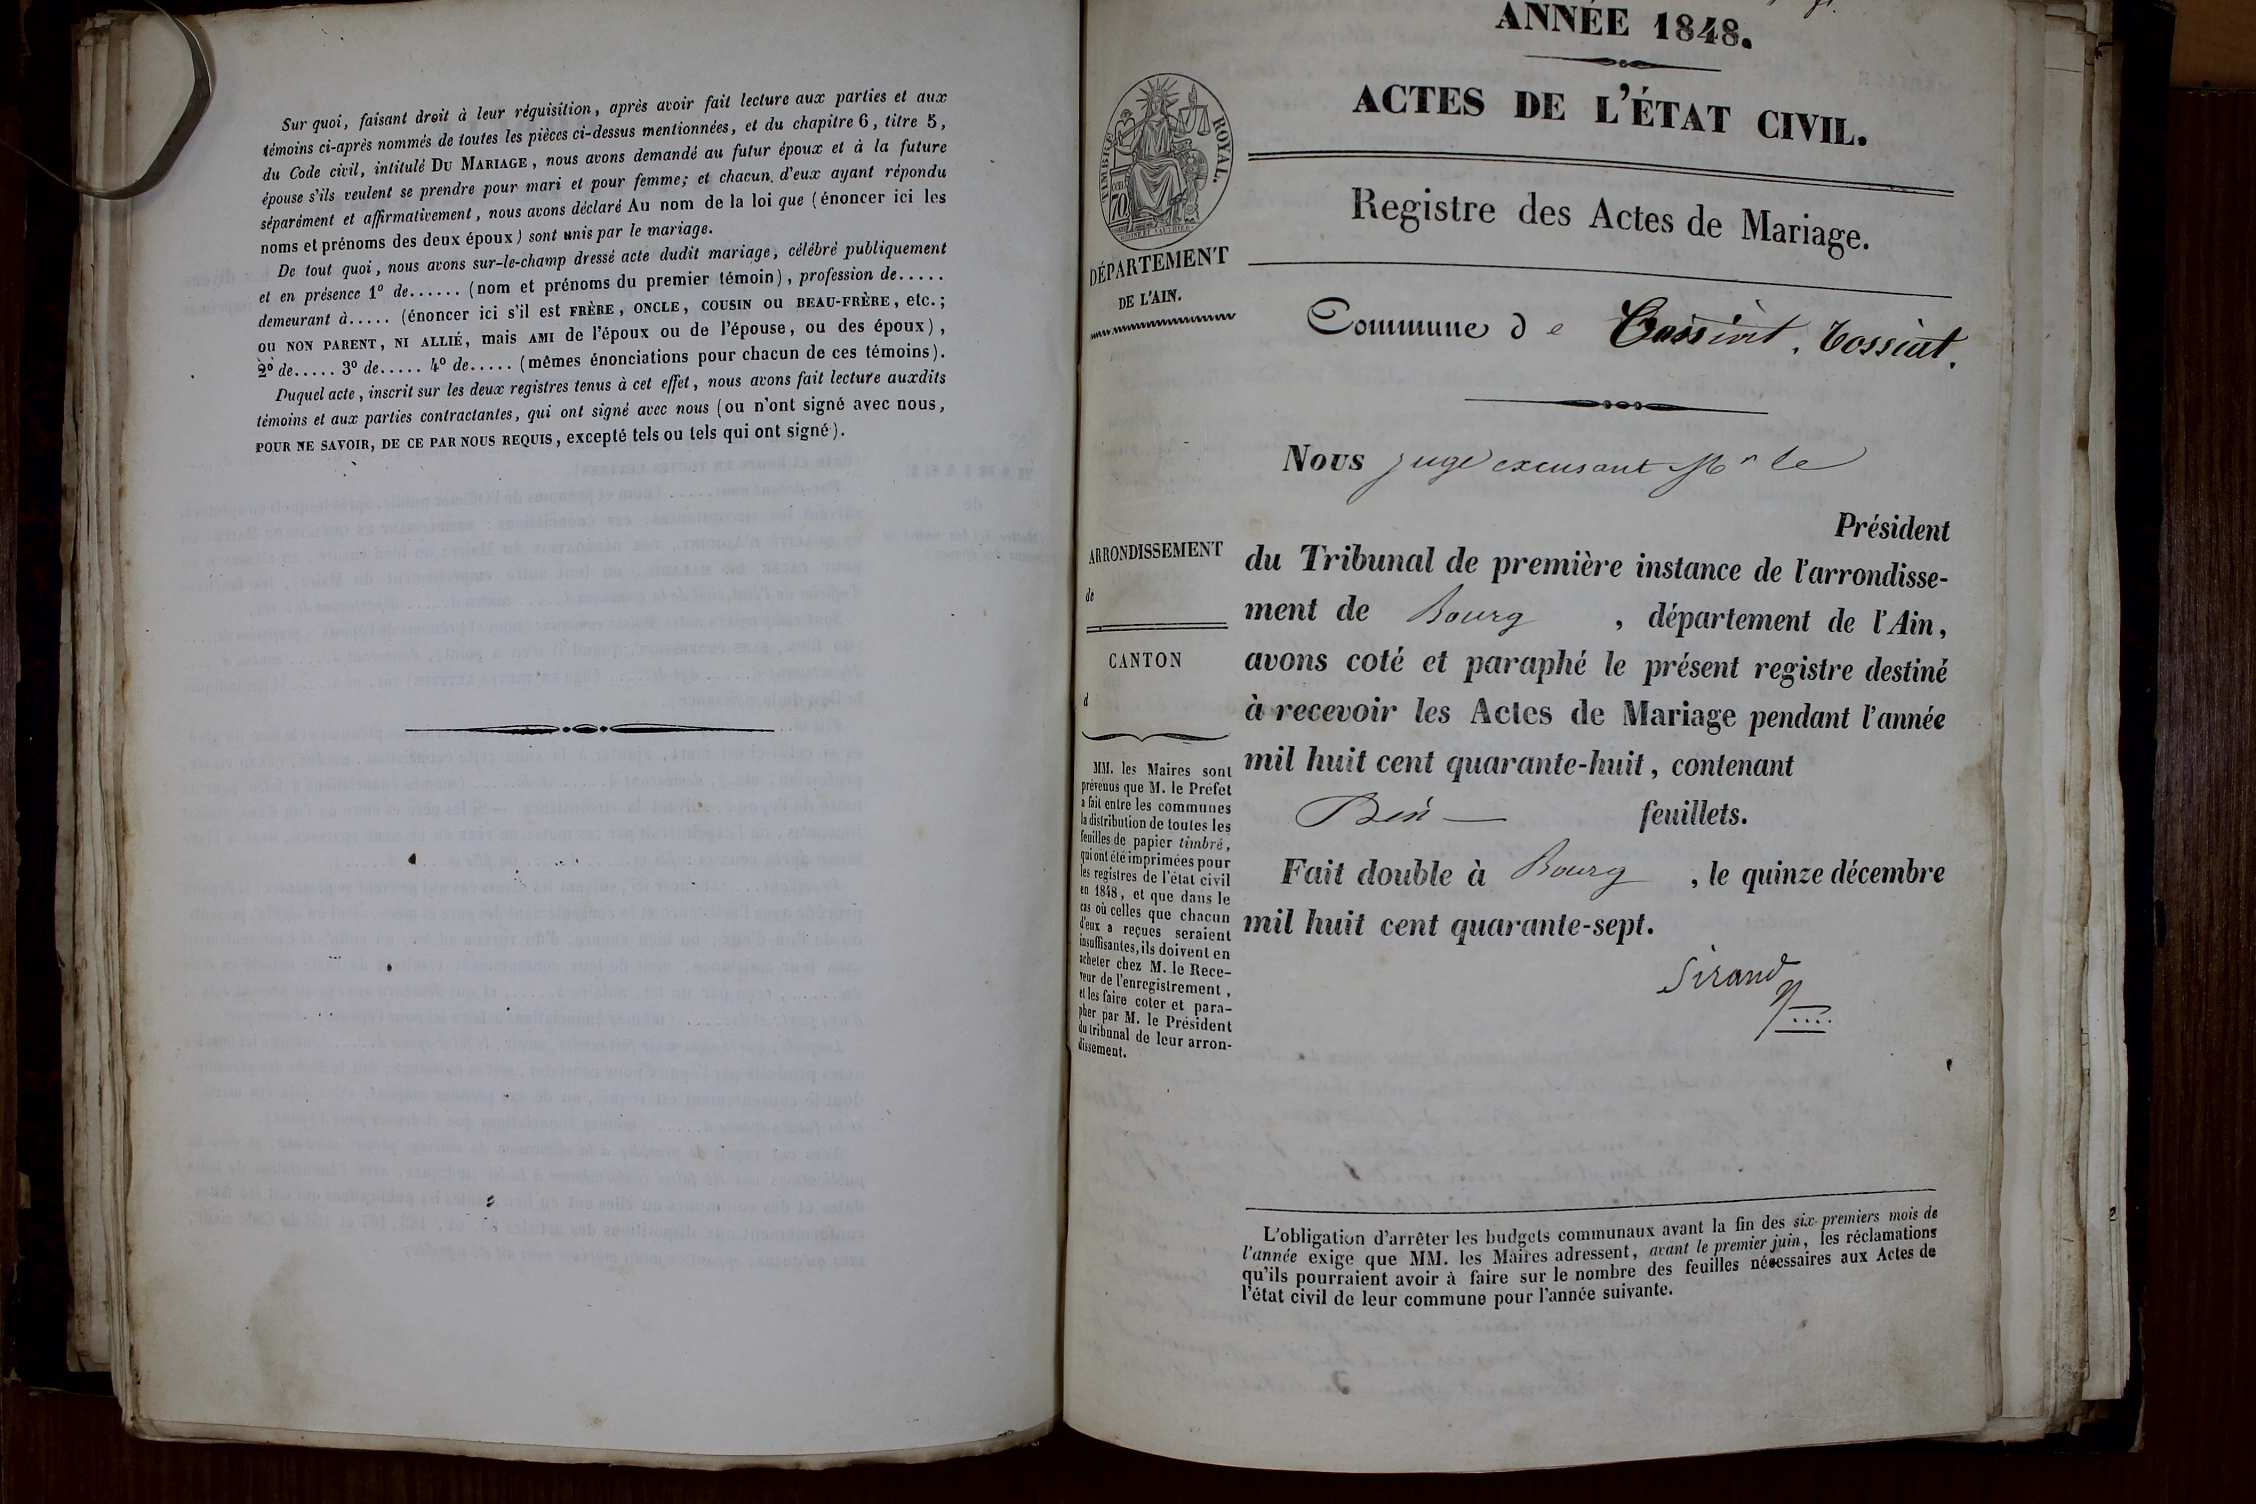 Sur quoi, faisant droit à leur réquisition, après avoir fait lecture aux parties et aux
témoins ci-après nommés de toutes les pièces ci-dessus mentionnées, et du chapitre 6, titre 5,
du Code civil, intitulé DU MARIAGE, nous avons demandé au futur époux et à la future
épouse s'ils veulent se prendre pour mari et pour femme; et chacun d'eux ayant répondu
séparément et affirmativement, nous avons déclaré Au nom de la loi que (énoncer ici les
noms et prénoms des deux époux) sont unis par le mariage.
De tout quoi, nous avons sur-le-champ dressé acte dudit mariage, célébré publiquement
et en présence 1º de...... (nom et prénoms du premier témoin), profession de.....
demeurant à..... (énoncer ici s'il est FRÈRE, ONCLE, COUSIN OU BEAU-FRÈRE, etc.;
OU NON PARENT, NI ALLIÉ, mais AMI de l'époux ou de l'épouse, ou des époux),
2º de..... 3º de..... 4º de..... (mêmes énonciations pour chacun de ces témoins).
Duquel acte, inscrit sur les deux registres tenus à cet effet, nous avons fait lecture auxdits
témoins et aux parties contractantes, qui ont signé avec nous (ou n'ont signé avec nous,
POUR NE SAVOIR, DE CE PAR NOUS REQUIS, excepté tels ou tels qui ont signé).
ANNÉE 1848.
ACTES DE L'ÉTAT CIVIL.
TIMBRE ROYAL.
70
Registre des Actes de Mariage.
DÉPARTEMENT
DE L'AIN.
Commune de Tossiat. Tossiat.
Nous juge excusant Mr le
Président
du Tribunal de première instance de l'arrondisse-
ment de Bourg, département de l'Ain,
avons coté et paraphé le présent registre destiné
à recevoir les Actes de Mariage pendant l'année
mil huit cent quarante-huit, contenant
feuillets.
Fait double à Bourg, le quinze décembre
mil huit cent quarante-sept.
Sirand
ARRONDISSEMENT
de
CANTON
d
MM. les Maires sont
prévenus que M. le Préfet
a fait entre les communes
la distribution de toutes les
feuilles de papier timbré,
qui ont été imprimées pour
les registres de l'état civil
en 1848, et que dans le
cas où celles que chacun
d'eux a reçues seraient
insuffisantes, ils doivent en
acheter chez M. le Rece-
veur de l'enregistrement,
et les faire coter et para-
pher par M. le Président
du tribunal de leur arron-
dissement.
L'obligation d'arrêter les budgets communaux avant la fin des six premiers mois de
l'année exige que MM. les Maires adressent, avant le premier juin, les réclamations
qu'ils pourraient avoir à faire sur le nombre des feuilles nécessaires aux Actes de
l'état civil de leur commune pour l'année suivante.